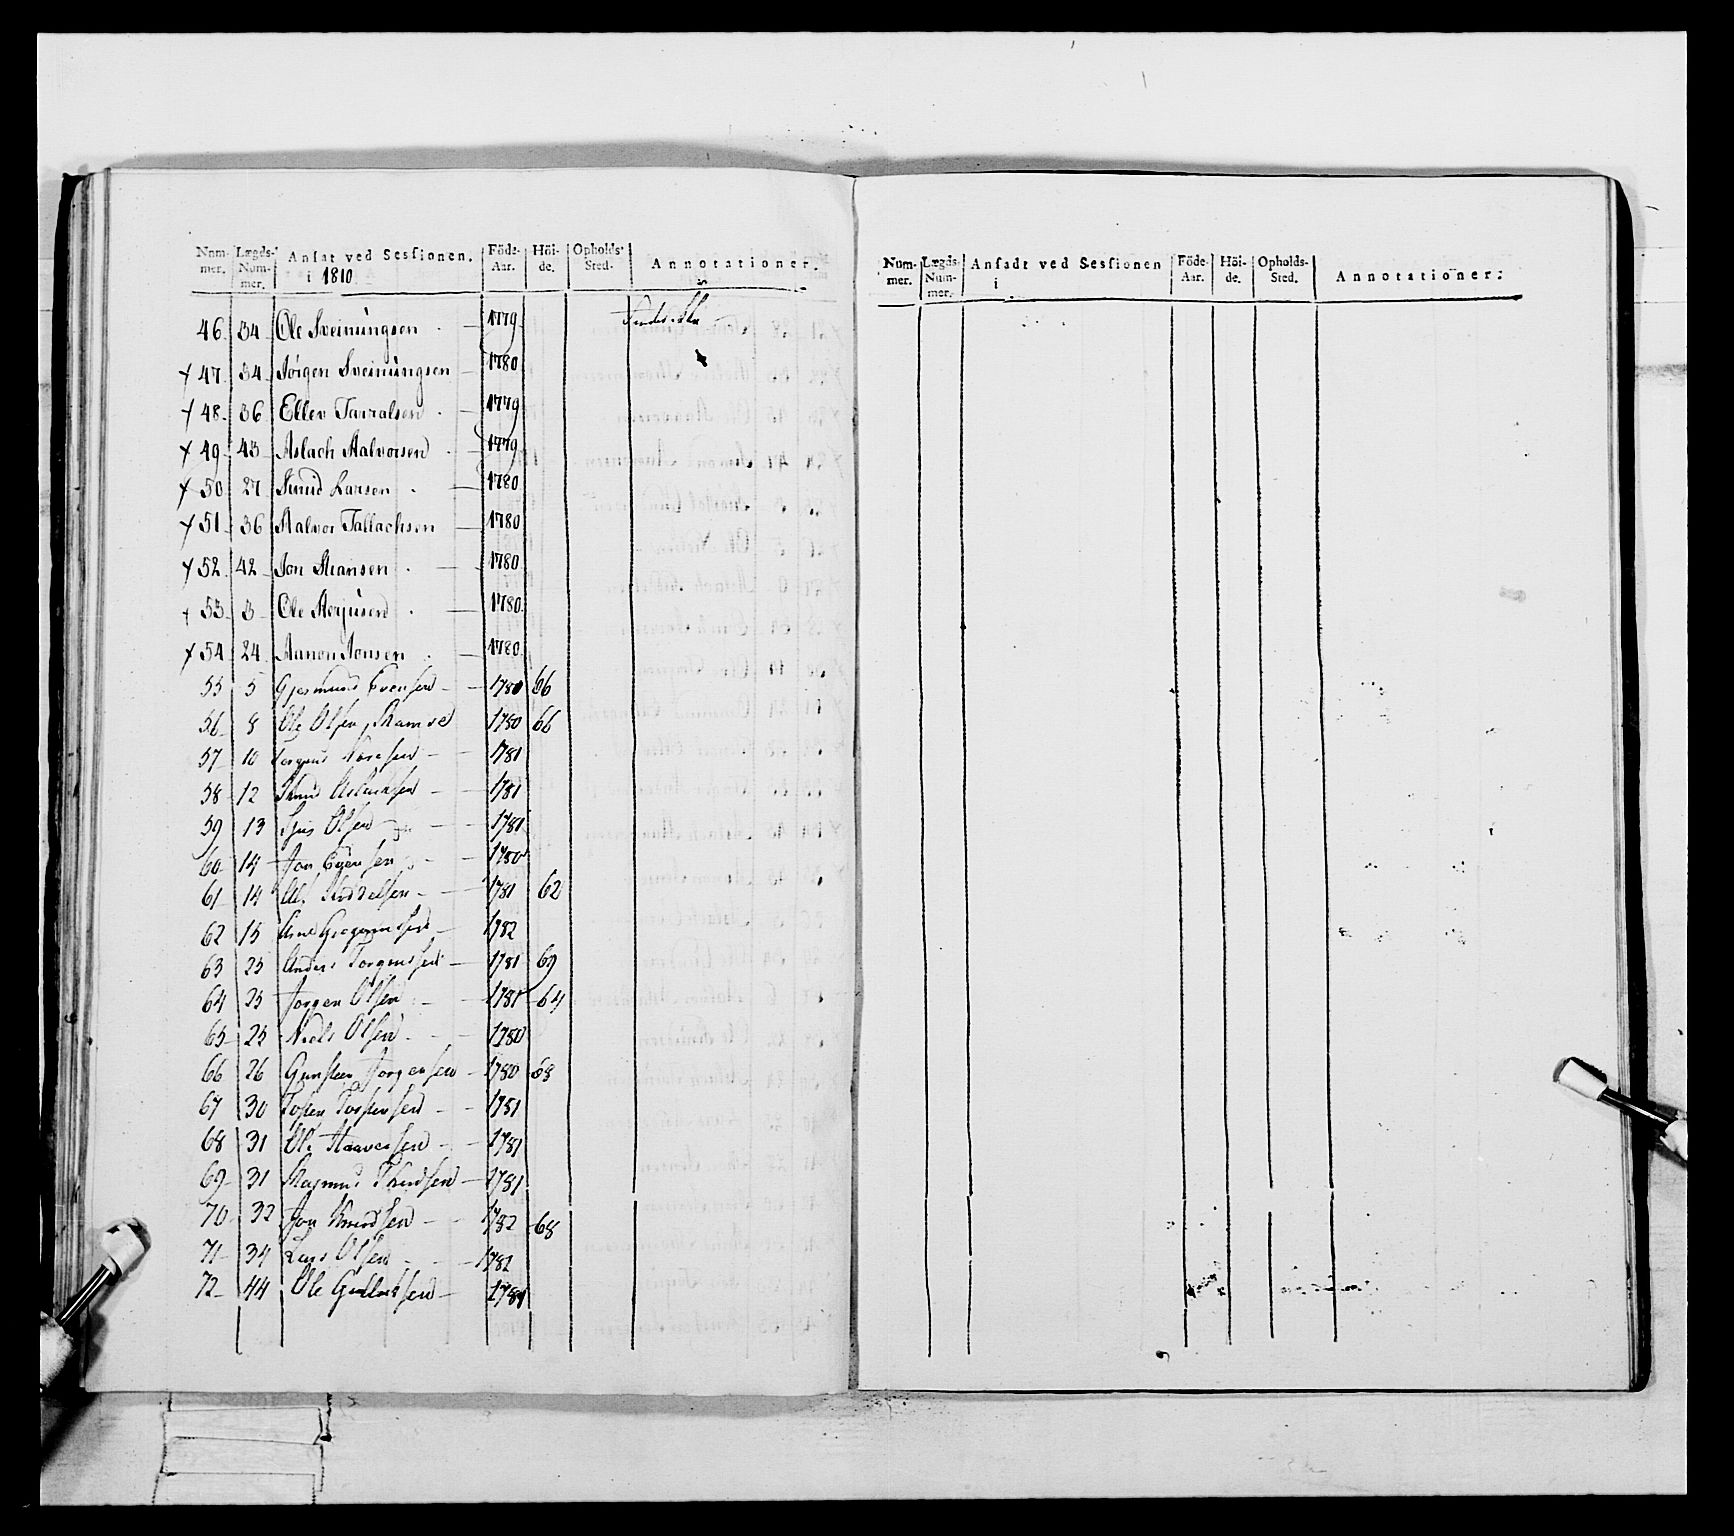 Num-mer. Lægds-Num-mer. Ansat ved Sessionen. i 1810 Föde-Aar. Höi-de. Opholds-Sted. Annotationer.
46. 34 Ole Sveinungsen 1779
+ 47. 34 Jörgen Sveinungsen 1780
+ 48. 36 Ellev Tarralsen 1779
+ 49 43 Aslach Halvorsen 1779
+ 50 27 Knud Larsen 1780
+ 51 36 Halvor Tallachsen 1780
+ 52 42 Jon 1780
+ 53 3 Ole Terjusen 1780
+ 54 24 Aanon Aonsen 1780
55 5 Gjermund Evensen 1780 66
56 8 Ole Olsen 1780 66
57 10 1781
58 12 Knud Aslachsen 1781
59 13 Olsen 1781
60 14 Jon Evensen 1780
61 14 Ole 1781 62
62 15 1782
63 25 Anders Torgersen 1781 69
64 25 Jorgen Olsen 1781 64
65 25 Niels Olsen 1780
66 26 Gunsten Jorgensen 1780 68
67 30 Tosten Tostensen 1781
68 31 Ole Haaversen 1781
69 31 Rasmus Knudsen 1781
70 32 Jon Knudsen 1782 68
71 34 Lars Olsen 1782
72 44 Ole 1781
Num-mer. Lægds-Num-mer. Ansadt ved Sessionen i Föde-Aar. Höi-de. Opholds-Sted. Annotationer: